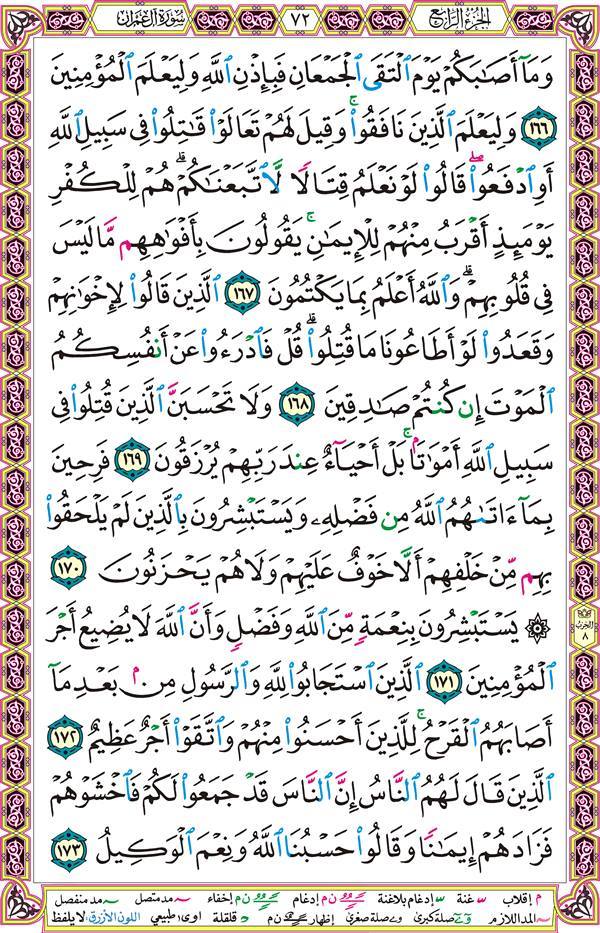 الجزء الرابع
٧٢
سورة آل عمران
وَمَآ أَصَٰبَكُمۡ يَوۡمَ ٱلۡتَقَى ٱلۡجَمۡعَانِ فَبِإِذۡنِ ٱللَّهِ وَلِيَعۡلَمَ ٱلۡمُؤۡمِنِينَ
١٦٦ وَلِيَعۡلَمَ ٱلَّذِينَ نَافَقُواْۚ وَقِيلَ لَهُمۡ تَعَالَوۡاْ قَٰتِلُواْ فِي سَبِيلِ ٱللَّهِ
أَوِ ٱدۡفَعُواْۖ قَالُواْ لَوۡ نَعۡلَمُ قِتَالٗا لَّٱتَّبَعۡنَٰكُمۡۗ هُمۡ لِلۡكُفۡرِ
يَوۡمَئِذٍ أَقۡرَبُ مِنۡهُمۡ لِلۡإِيمَٰنِۚ يَقُولُونَ بِأَفۡوَٰهِهِم مَّا لَيۡسَ
فِي قُلُوبِهِمۡۚ وَٱللَّهُ أَعۡلَمُ بِمَا يَكۡتُمُونَ ١٦٧ ٱلَّذِينَ قَالُواْ لِإِخۡوَٰنِهِمۡ
وَقَعَدُواْ لَوۡ أَطَاعُونَا مَا قُتِلُواْۗ قُلۡ فَٱدۡرَءُواْ عَنۡ أَنفُسِكُمُ
ٱلۡمَوۡتَ إِن كُنتُمۡ صَٰدِقِينَ ١٦٨ وَلَا تَحۡسَبَنَّ ٱلَّذِينَ قُتِلُواْ فِي
سَبِيلِ ٱللَّهِ أَمۡوَٰتَۢاۚ بَلۡ أَحۡيَآءٌ عِندَ رَبِّهِمۡ يُرۡزَقُونَ ١٦٩ فَرِحِينَ
بِمَآ ءَاتَىٰهُمُ ٱللَّهُ مِن فَضۡلِهِۦ وَيَسۡتَبۡشِرُونَ بِٱلَّذِينَ لَمۡ يَلۡحَقُواْ
بِهِم مِّنۡ خَلۡفِهِمۡ أَلَّا خَوۡفٌ عَلَيۡهِمۡ وَلَا هُمۡ يَحۡزَنُونَ ١٧٠
۞ يَسۡتَبۡشِرُونَ بِنِعۡمَةٖ مِّنَ ٱللَّهِ وَفَضۡلٖ وَأَنَّ ٱللَّهَ لَا يُضِيعُ أَجۡرَ
ٱلۡمُؤۡمِنِينَ ١٧١ ٱلَّذِينَ ٱسۡتَجَابُواْ لِلَّهِ وَٱلرَّسُولِ مِنۢ بَعۡدِ مَآ
أَصَابَهُمُ ٱلۡقَرۡحُۚ لِلَّذِينَ أَحۡسَنُواْ مِنۡهُمۡ وَٱتَّقَوۡاْ أَجۡرٌ عَظِيمٌ ١٧٢
ٱلَّذِينَ قَالَ لَهُمُ ٱلنَّاسُ إِنَّ ٱلنَّاسَ قَدۡ جَمَعُواْ لَكُمۡ فَٱخۡشَوۡهُمۡ
فَزَادَهُمۡ إِيمَٰنٗا وَقَالُواْ حَسۡبُنَا ٱللَّهُ وَنِعۡمَ ٱلۡوَكِيلُ ١٧٣
الحزب
٨
م إقلاب غنة إدغام بلاغنة ن م إدغام ن م إخفاء مد متصل مد منفصل
المد اللازم صلة كبرى صلة صغرى إظهار ن م قلقلة اوى: طبيعي اللون الأزرق: لا يلفظ